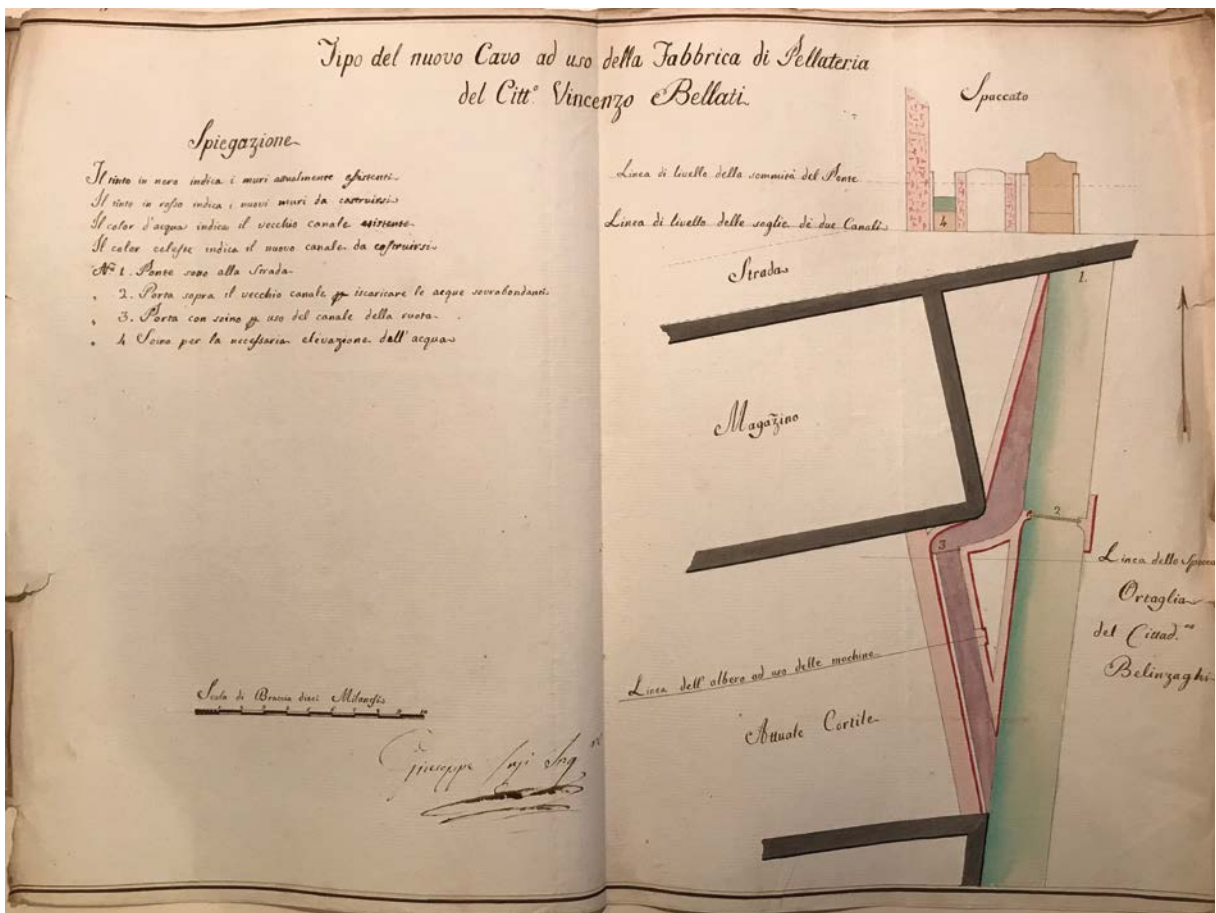 Tipo del nuovo Cavo ad uso della Fabbrica di Pellateria
del Citt.º Vincenzo Bellati
Spiegazione
Il tinto in nero indica i muri attualmente esistenti
Il tinto in rosso indica i nuovi muri da costruirsi
Il color d'acqua indica il vecchio canale esistente
Il color celeste indica il nuovo canale da costruirsi
Nº 1. Ponte sotto alla Strada
" 2. Porta sopra il vecchio canale iscaricare le acque sovrabondanti
" 3. Porta con soino uso del canale della ruota
" 4 Soino per la necessaria elevazione dell'acqua
Scala di Braccia dieci Milanesi
Giuseppe Ing
Spaccato
Linea di livello della sommità del Ponte
Linea di livello delle soglie de due Canali
4
Strada
1.
Magazino
2
3
Linea dello
Ortaglia
del Cittad.no
Belinzaghi
Linea dell'albero ad uso delle machine
Attuale Cortile